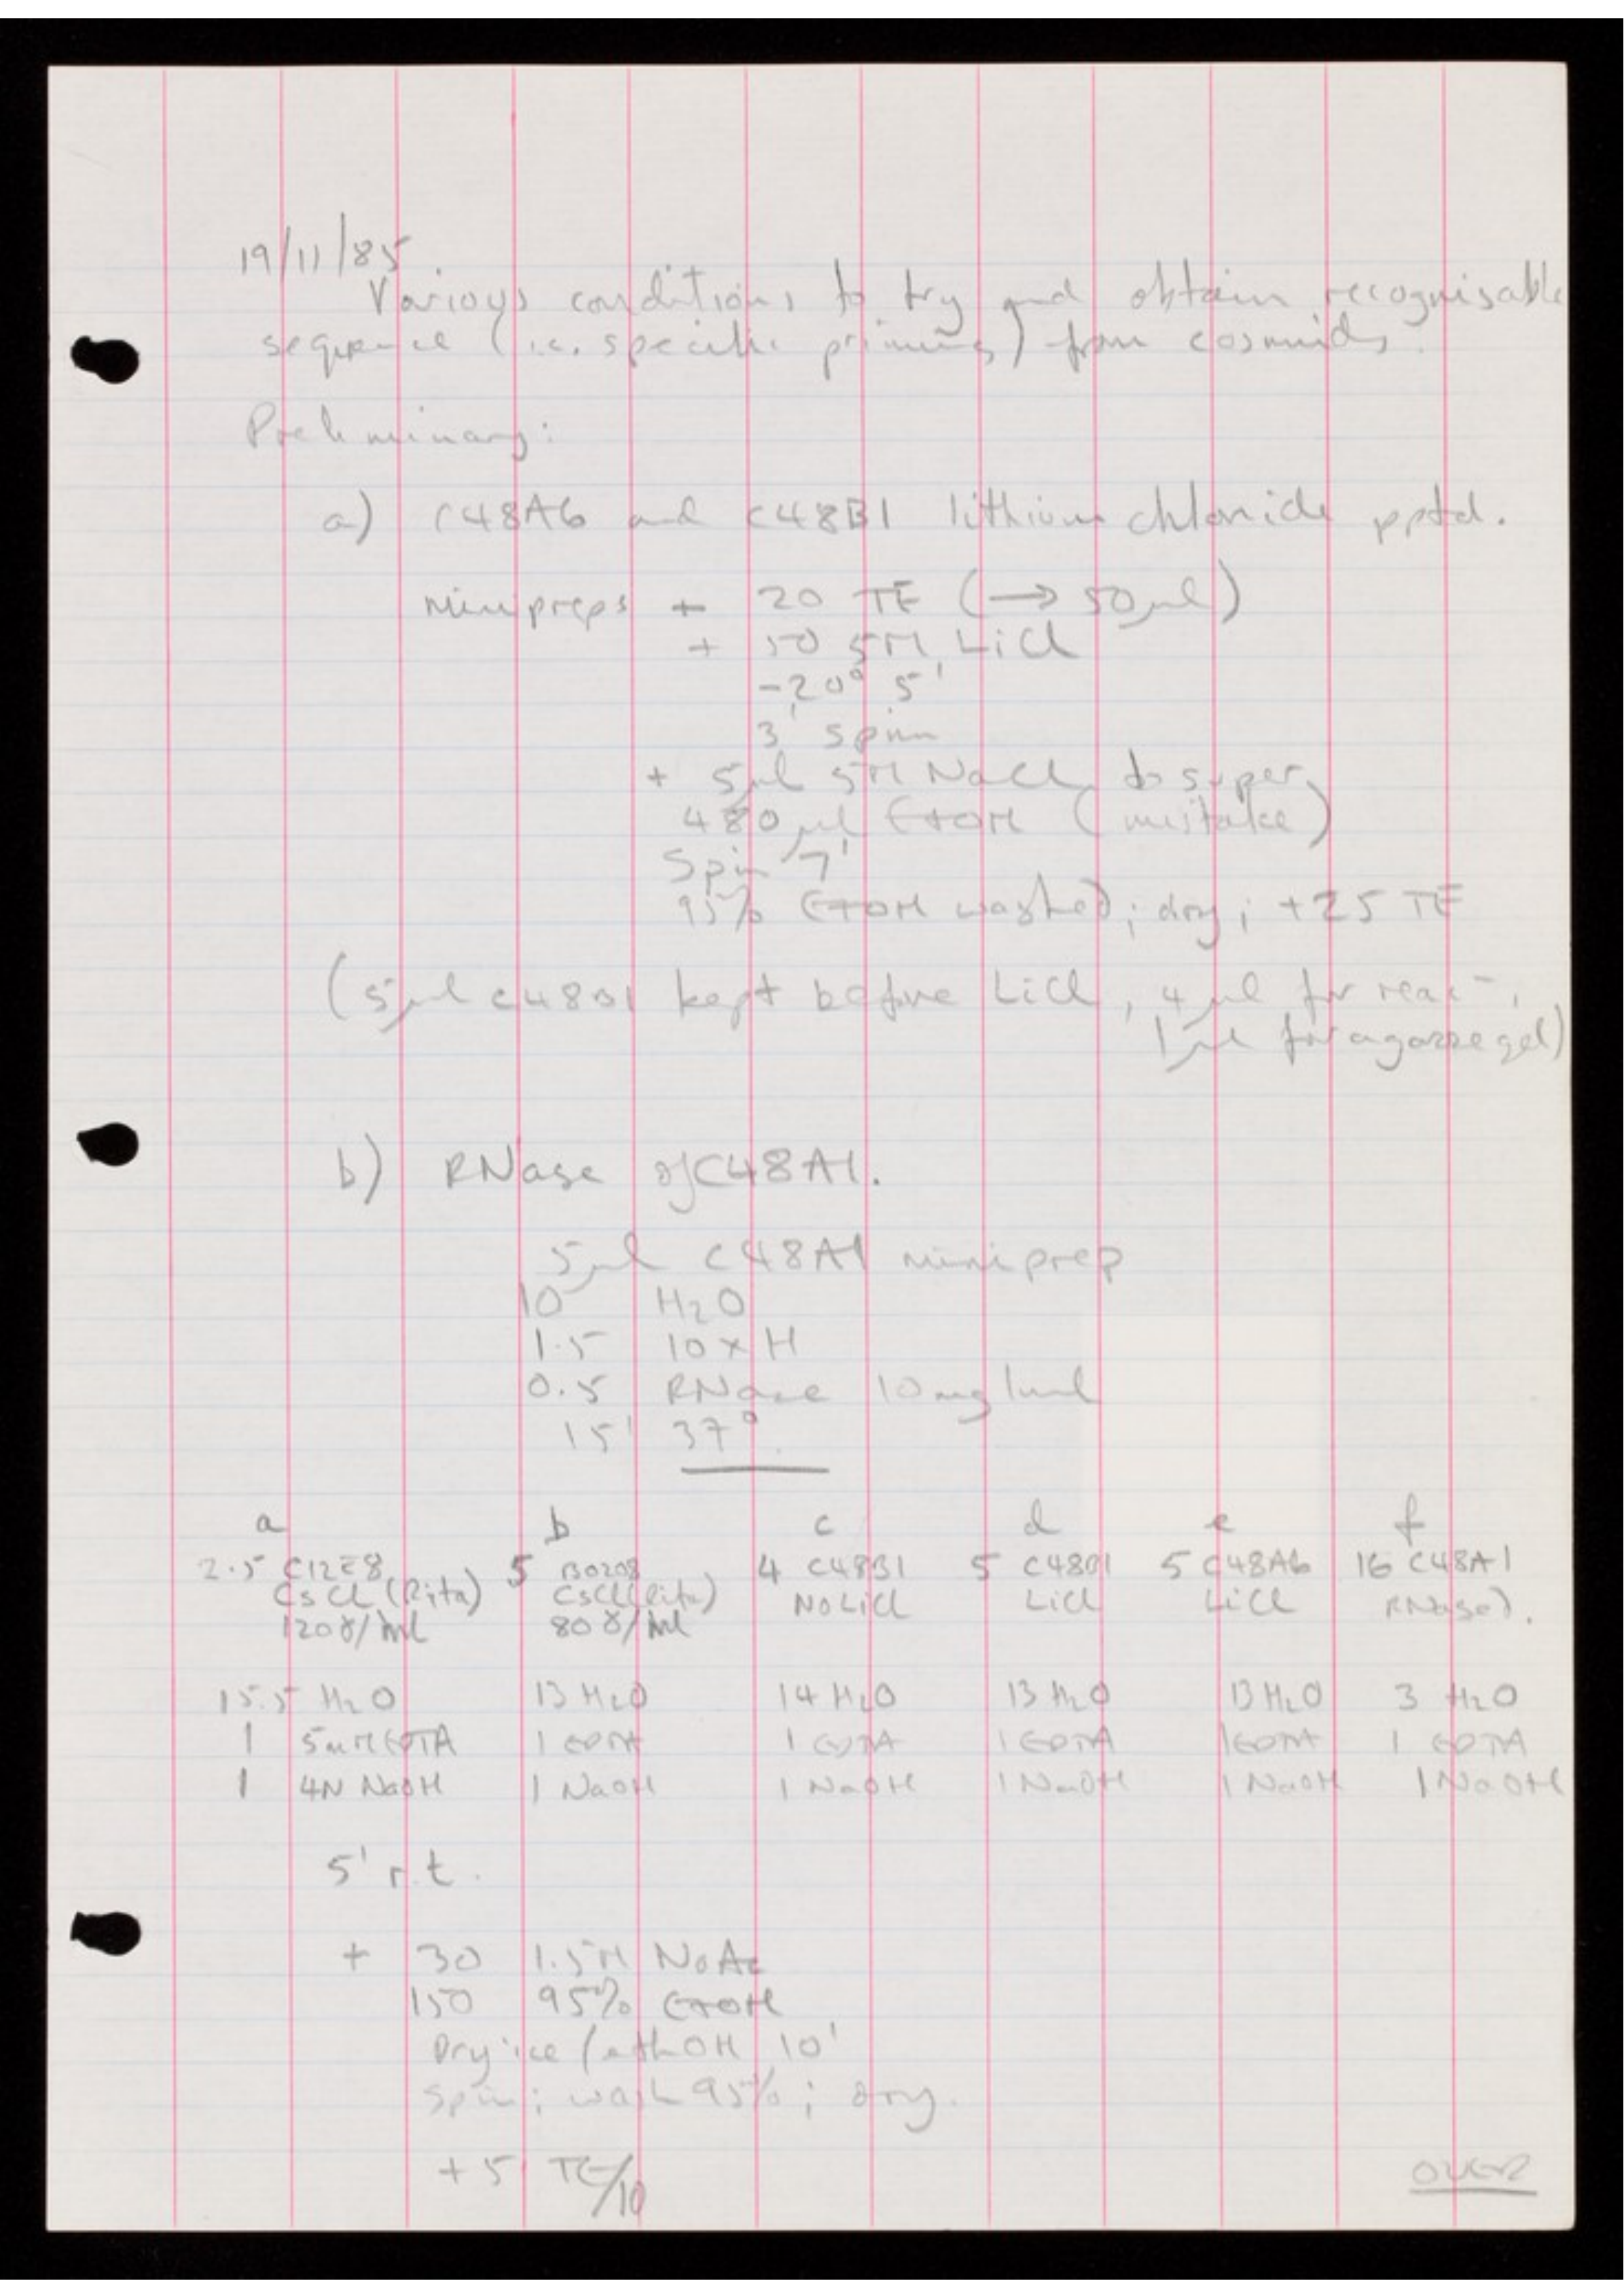 19/11/85.
Various conditions to try and obtain recognisable
sequence (i.e. specific priming) from cosmids.
Preliminary:
a) C48A6 and C48B1 lithium chloride pptd.
minipreps + 20 TE (→ 50µl)
+ 50 5M LiCl
-20° 5'
3' spin
+ 5µl 5M NaCl to super
480µl EtOH (mistake)
Spin 7'
95% EtOH washed; dry; +25 TE
(5µl C48B1 kept before LiCl, 4µl for reac-,
1µl for agarose gel)
b) RNase of C48A1.
5µl C48A1 miniprep
10 H2O
1.5 10 x H
0.5 RNase 10mg/ml
15' 37°.
a b c d e f
2.5 C12E8 5 B0208 4 C48B1 5 C48B1 5 C48A6 16 C48A1
CsCl (Rita) CsCl (Rita) No LiCl LiCl LiCl RNased.
120γ/ml 80γ/ml
15.5 H2O 13 H2O 14 H2O 13 H2O 13 H2O 3 H2O
1 5mM EDTA 1 EDTA 1 EDTA 1 EDTA 1 EDTA 1 EDTA
1 4N NaOH 1 NaOH 1 NaOH 1 NaOH 1 NaOH 1 NaOH
5' r.t.
+ 30 1.5M NaAc
150 95% EtOH
Dry ice/ethOH 10'
Spin; wash 95%; dry.
+5 TE/10
OVER